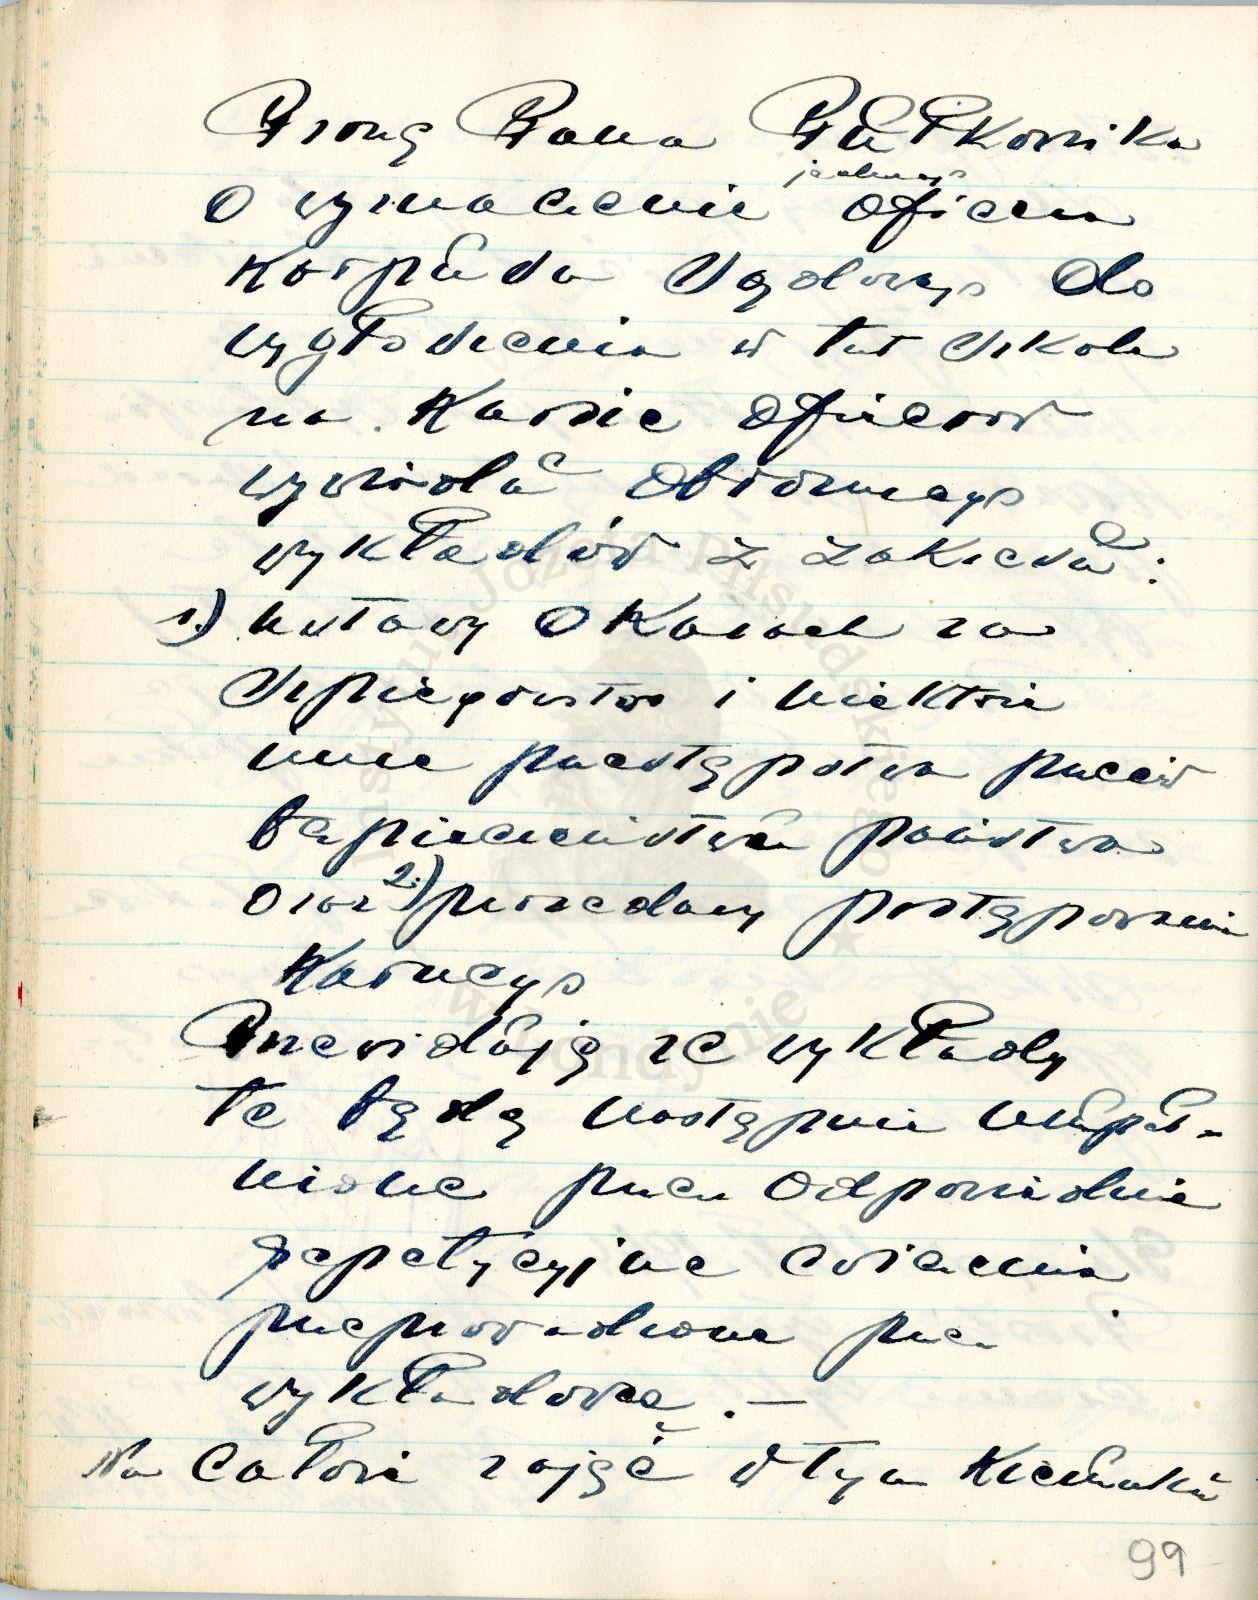 Proszę Pana Pułkownika
o wyznaczenie jednego oficera
korpusu sądowego do
wygłoszenia w tut szkole
na kursie oficerów
wywiadu obronnego
wykładów z zakresu:
1.) ustawy o karach za
szpiegostwo i niektóre
inne przestępstwa przeciw
bezpieczeństwu państwa
oraz 2.) procedury postępowania
karnego
Przewiduję że wykłady
te będą następnie uzupeł-
nione przez odpowiednie
repetycyjne ćwiczenia
przeprowadzone przez
wykładowcę. —
Na całość zajęć w tym kierunku
99
Instytut Józefa Piłsudskiego
w Londynie